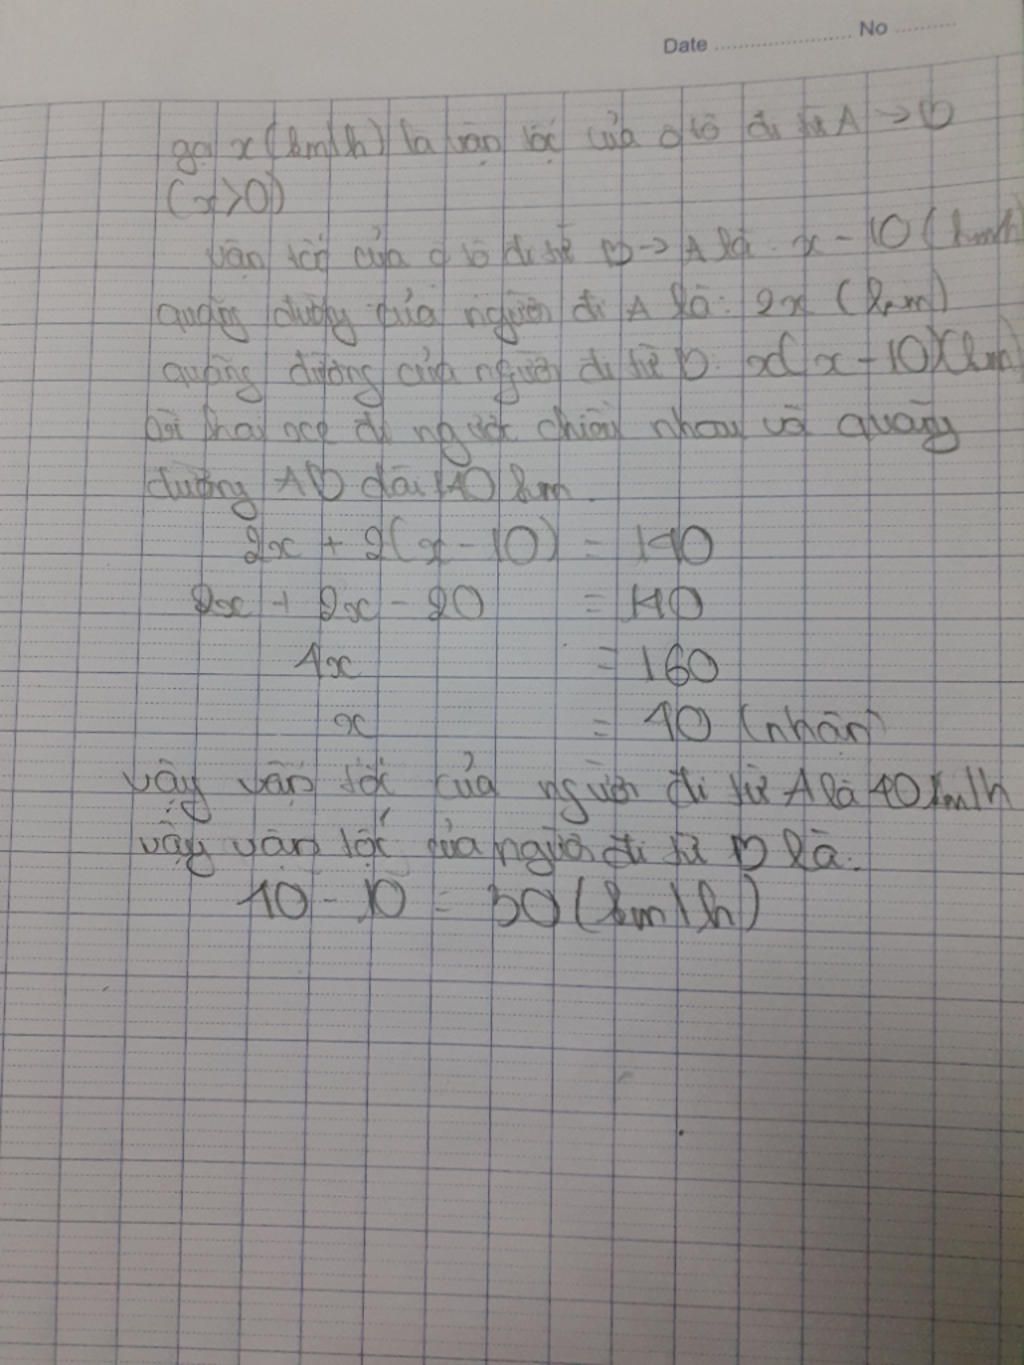 Date ........................ No ...........
gọi x (km/h) là vận tốc của ô tô đi từ A → B
(x>0)
vận tốc của ô tô đi từ B → A là x - 10 (km/h
quãng đường của người đi A là: 2x (km)
quãng đường của người đi từ B: x(x - 10)(km)
Bởi hai xe đi ngược chiều nhau và quãng
đường AB dài 140 km.
2x + 2(x - 10) = 140
2x + 2x - 20 = 140
4x = 160
x = 40 (nhận)
vậy vận tốc của người đi từ A là 40 km/h
vậy vận tốc của người đi từ B là:
40 - 10 = 30 (km/h)